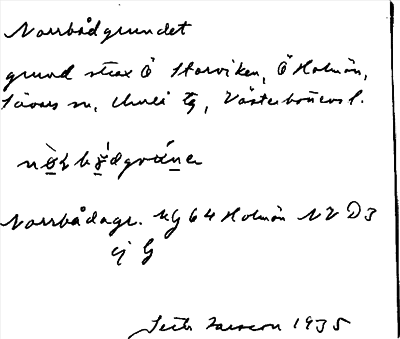 Norrbådgrundet
grund strax Ö Storviken, Ö Holmön,
Sävars sn, Umeå tg, Västerbottens l.
Norrbådagr. kg 64 Holmön NV D3
ej G
Seth Larsson 1935